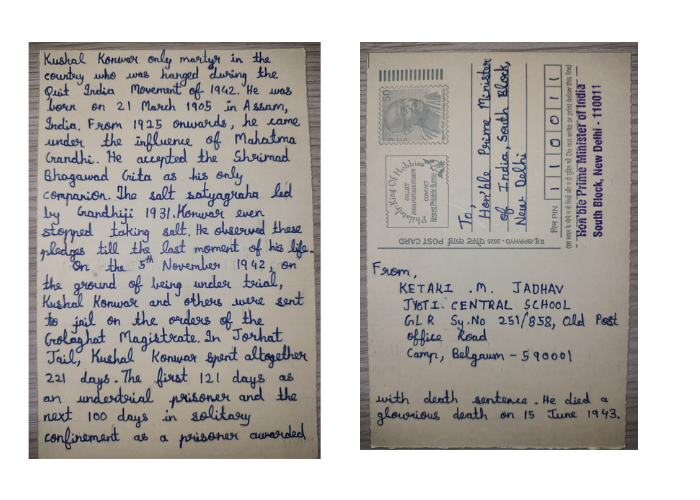 Kushal Konwar only martyr in the
country who was hanged during the
Quit India Movement of 1942. He was
born on 21 March 1905 in Assam,
India. From 1925 onwards, he came
under the influence of Mahatma
Gandhi. He accepted the Shrimad
Bhagawad Gita as his only
companion. The salt satyagraha led
by Gandhiji 1931. Konwar even
stopped taking salt. He observed these
pledges till the last moment of his life.
On the 5th November 1942, on
the ground of being under trial,
Kushal Konwar and others were sent
to jail on the orders of the
Golaghat Magistrate. In Jorhat
Jail, Kushal Konwar spent altogether
221 days. The first 121 days as
an undertrial prisoner and the
next 100 days in solitary
confinement as a prisoner awarded
POST CARD
50
Philately King Of Hobbies
To,
Hon'ble Prime Minister
of India, South Block,
New Delhi
पिन PIN
1 1 0 0 1 1
Hon'ble Prime Minister of India
South Block, New Delhi - 110011
From,
KETAKI .M. JADHAV
JYOTI CENTRAL SCHOOL
GLR Sy.No 251/858, Old Post
office Road
Camp, Belgaum - 590001
with death sentence. He died a
glowrious death on 15 June 1943.